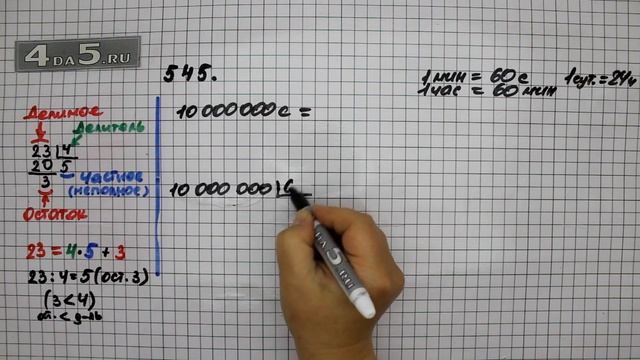 4DA5.RU
545.
1 мин = 60 с 1 сут. = 24 ч
1 час = 60 мин
Делимое
Делитель
23 4
20 5
3
Частное
(неполное)
Остаток
23 = 4 · 5 + 3
23 : 4 = 5 (ост. 3)
(3 < 4)
ост. < д-ль
10 000 000 с =
10 000 000 6
4DA5.RU